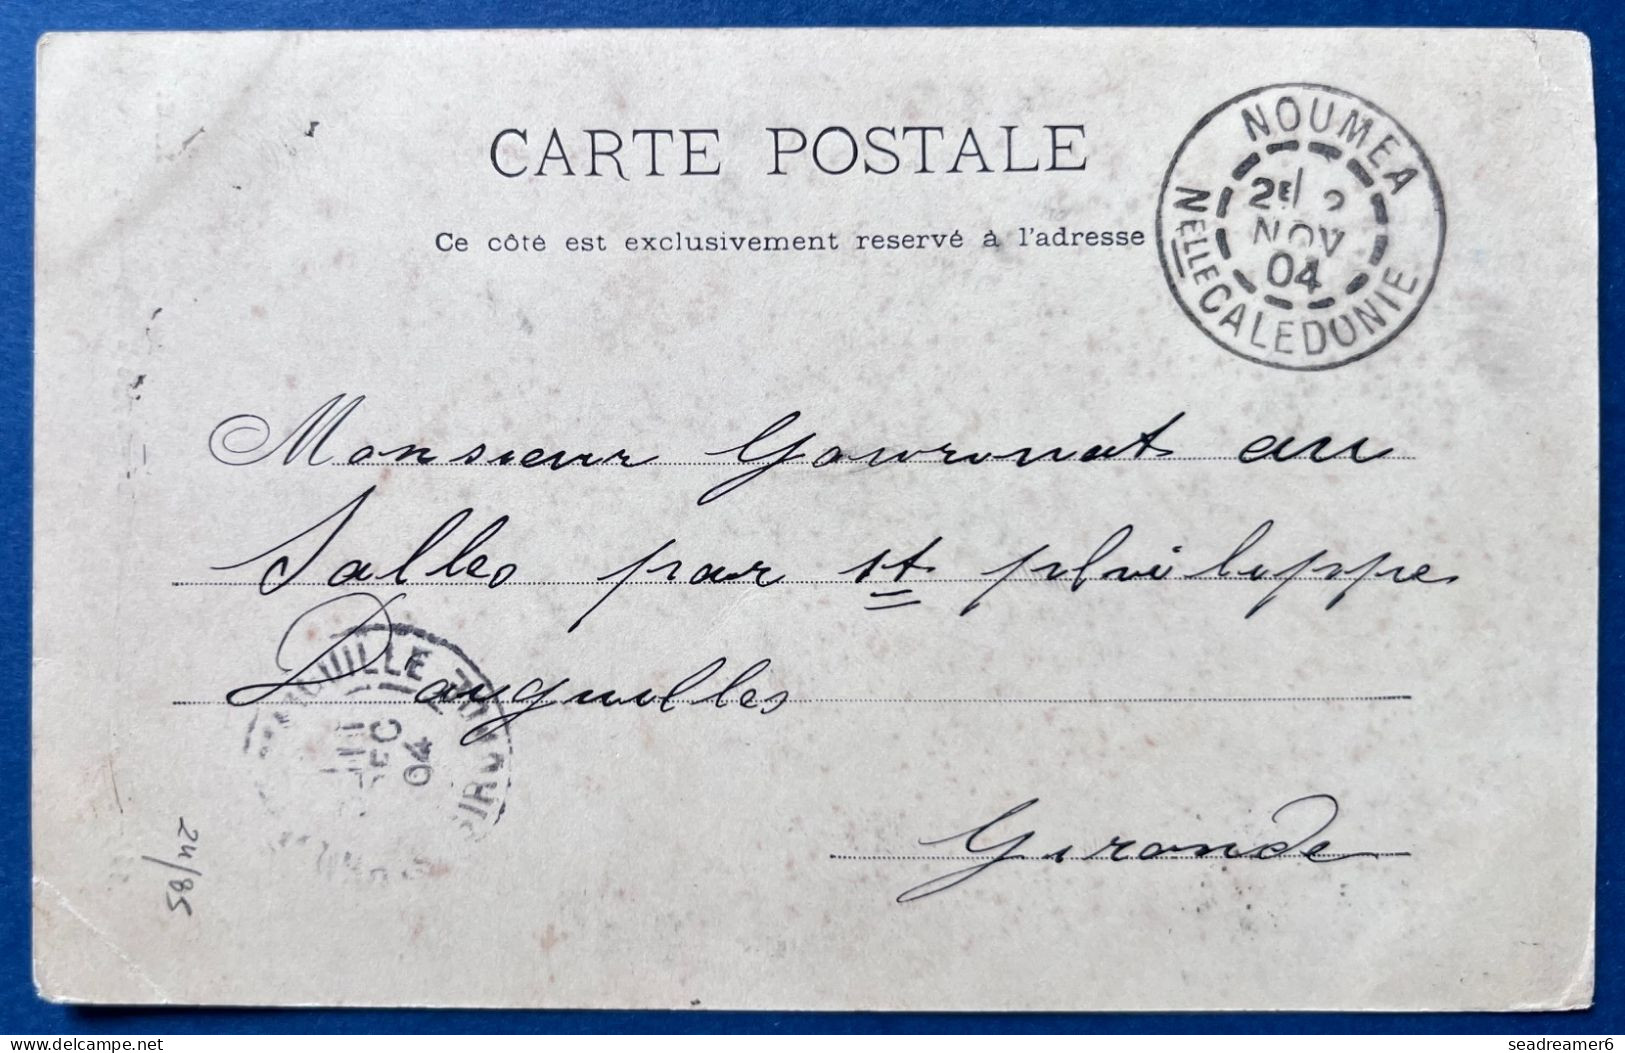 CARTE POSTALE
Ce côté est exclusivement reservé à l'adresse
NOUMEA
2E/ 2
NOV
04
NELLE CALEDONIE
Monsieur Gouronnat au
Salles par st philippe
Dayguilles
Gironde
OUILLE
DEC
04
GIR
24/85
seadreamer6
www.delcampe.net